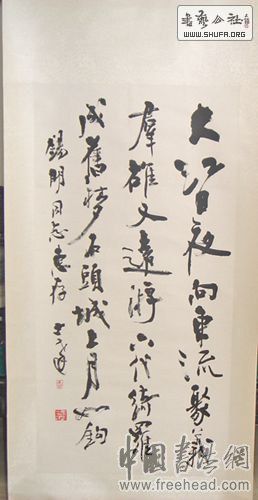 書藝公社
WWW.SHUFA.ORG
大江日夜向東流聚義
群雄又遠游六代綺羅
成舊夢石頭城上月如鈎
錫明同志惠存
中國書法網
www.freehead.com